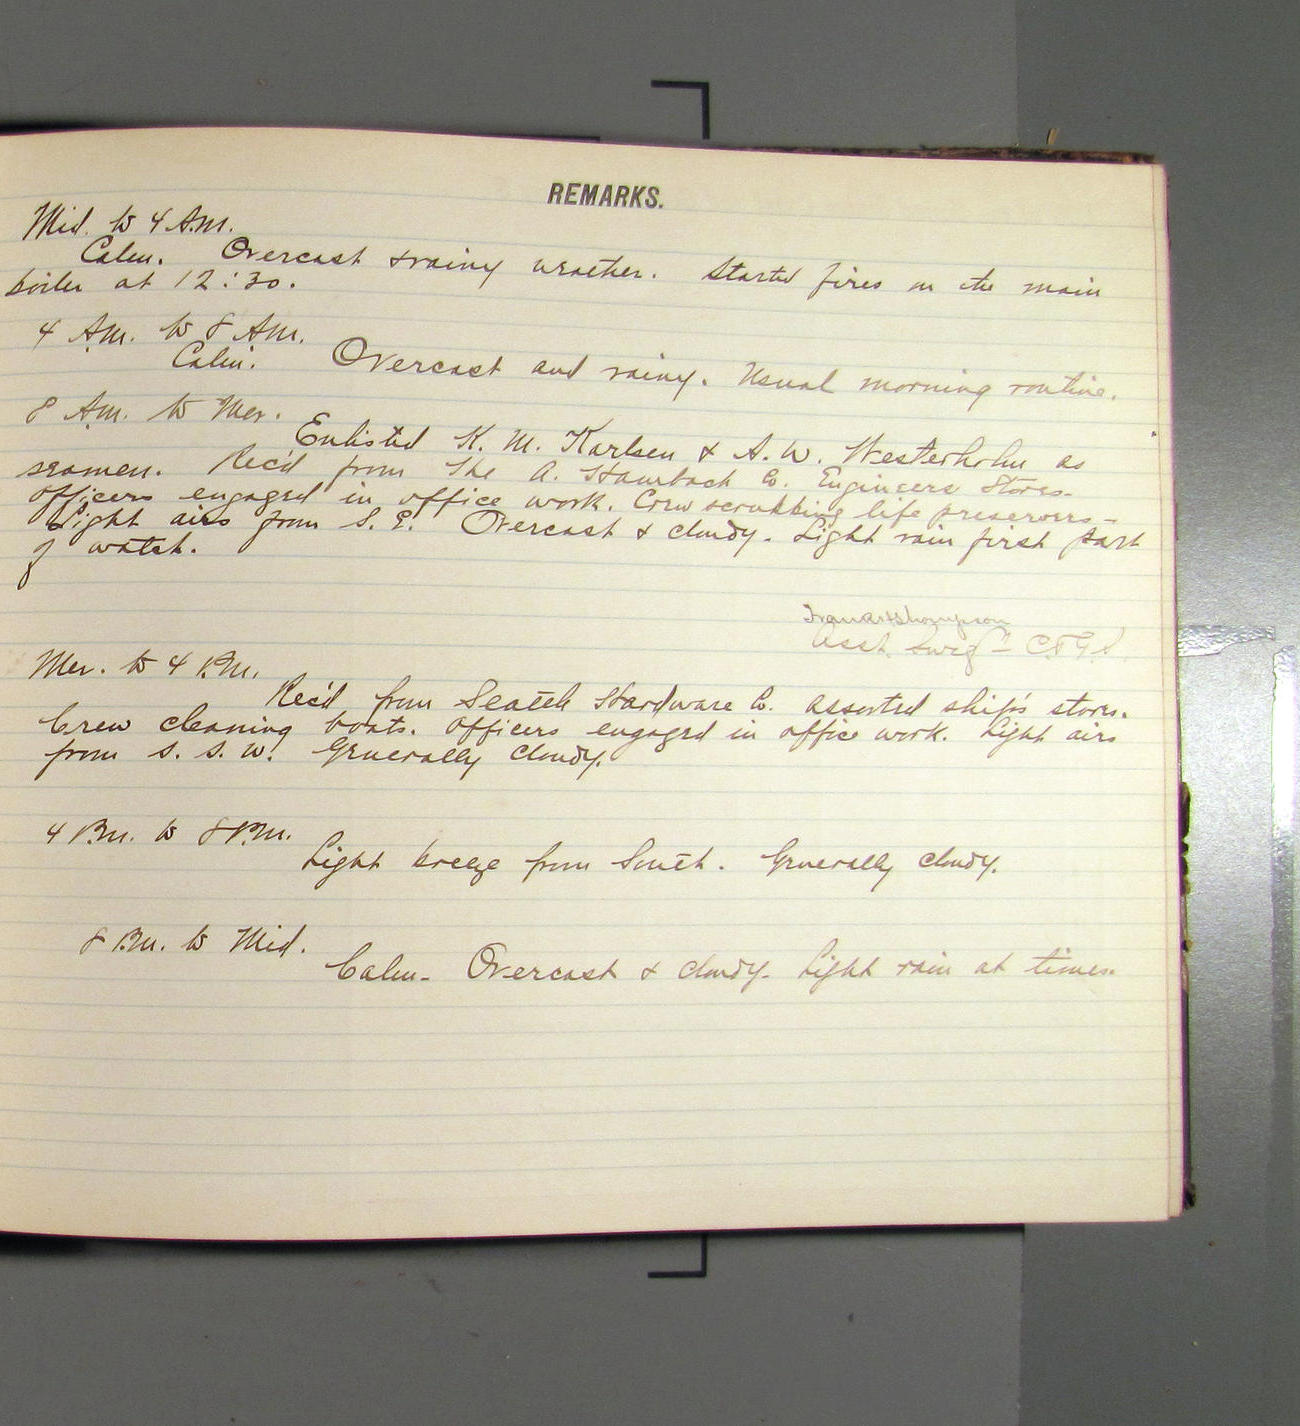 REMARKS.
Mid. to 4 A.M.
Calm. Overcast & rainy weather. Started fires in the main
boiler at 12:30.
4 A.M. to 8 A.M.
Calm. Overcast and rainy. Usual morning routine.
8 A.M. to Mer.
Enlisted K. M. Karlsen & A. W. Westerholm as
seamen. Rec'd from The A. Co. Engineers Stores.
Officers engaged in office work. Crew scrubbing life preservers-
Light airs from S. E. Overcast & cloudy. Light rain first part
of watch.
Thompson
Asst. Surg C. & G. S.
Mer. to 4 P.M.
Rec'd from Seattle Hardware Co. assorted ship's stores.
Crew cleaning boats. Officers engaged in office work. Light airs
from S. S. W. Generally cloudy.
4 P.M. to 8 P.M.
Light breeze from South. Generally cloudy.
8 P.M. to Mid.
Calm- Overcast & cloudy- Light rain at times.